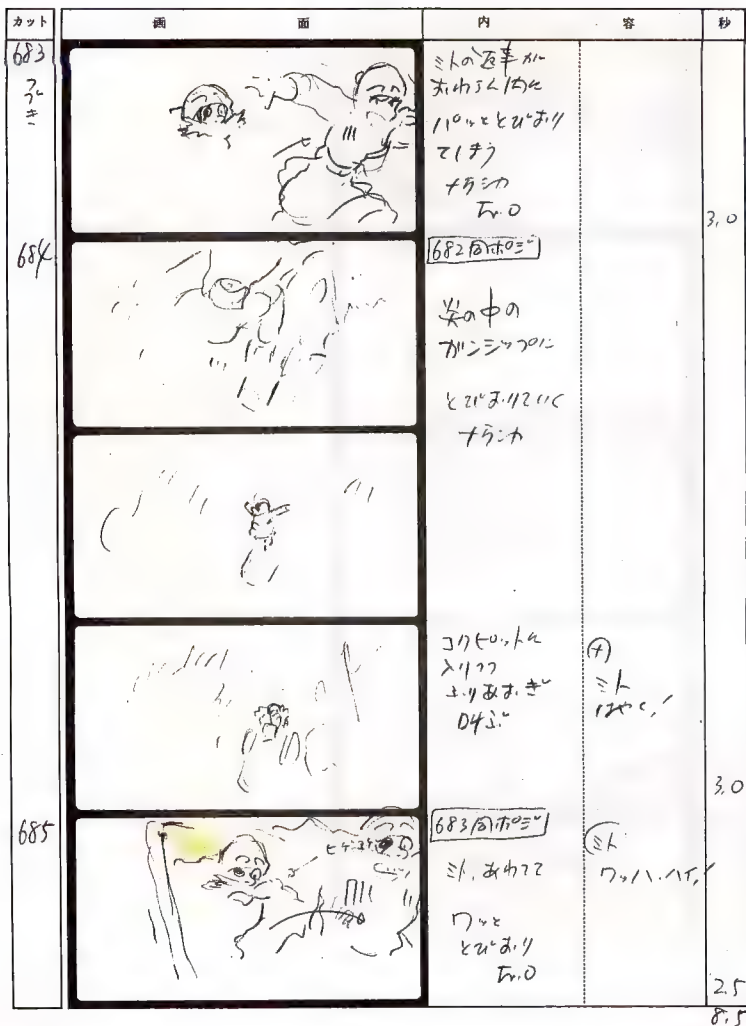 カット 画 面 内 容 秒
683
つづき
ミトの返事が
おわらん内に
パッととびおり
てしまう
ナウシカ
Fr.O
3.0
684
682同ポジ
炎の中の
ガンシップに
とびおりていく
ナウシカ
コクピットに
入りつつ
ふりあおぎ
叫ぶ
ナ
ミト
はやく!
3.0
685
683同ポジ
ミト、あわてて
ワッと
とびおり
Fr.O
ミト
ワッハ、ハイ!
2.5
8.5